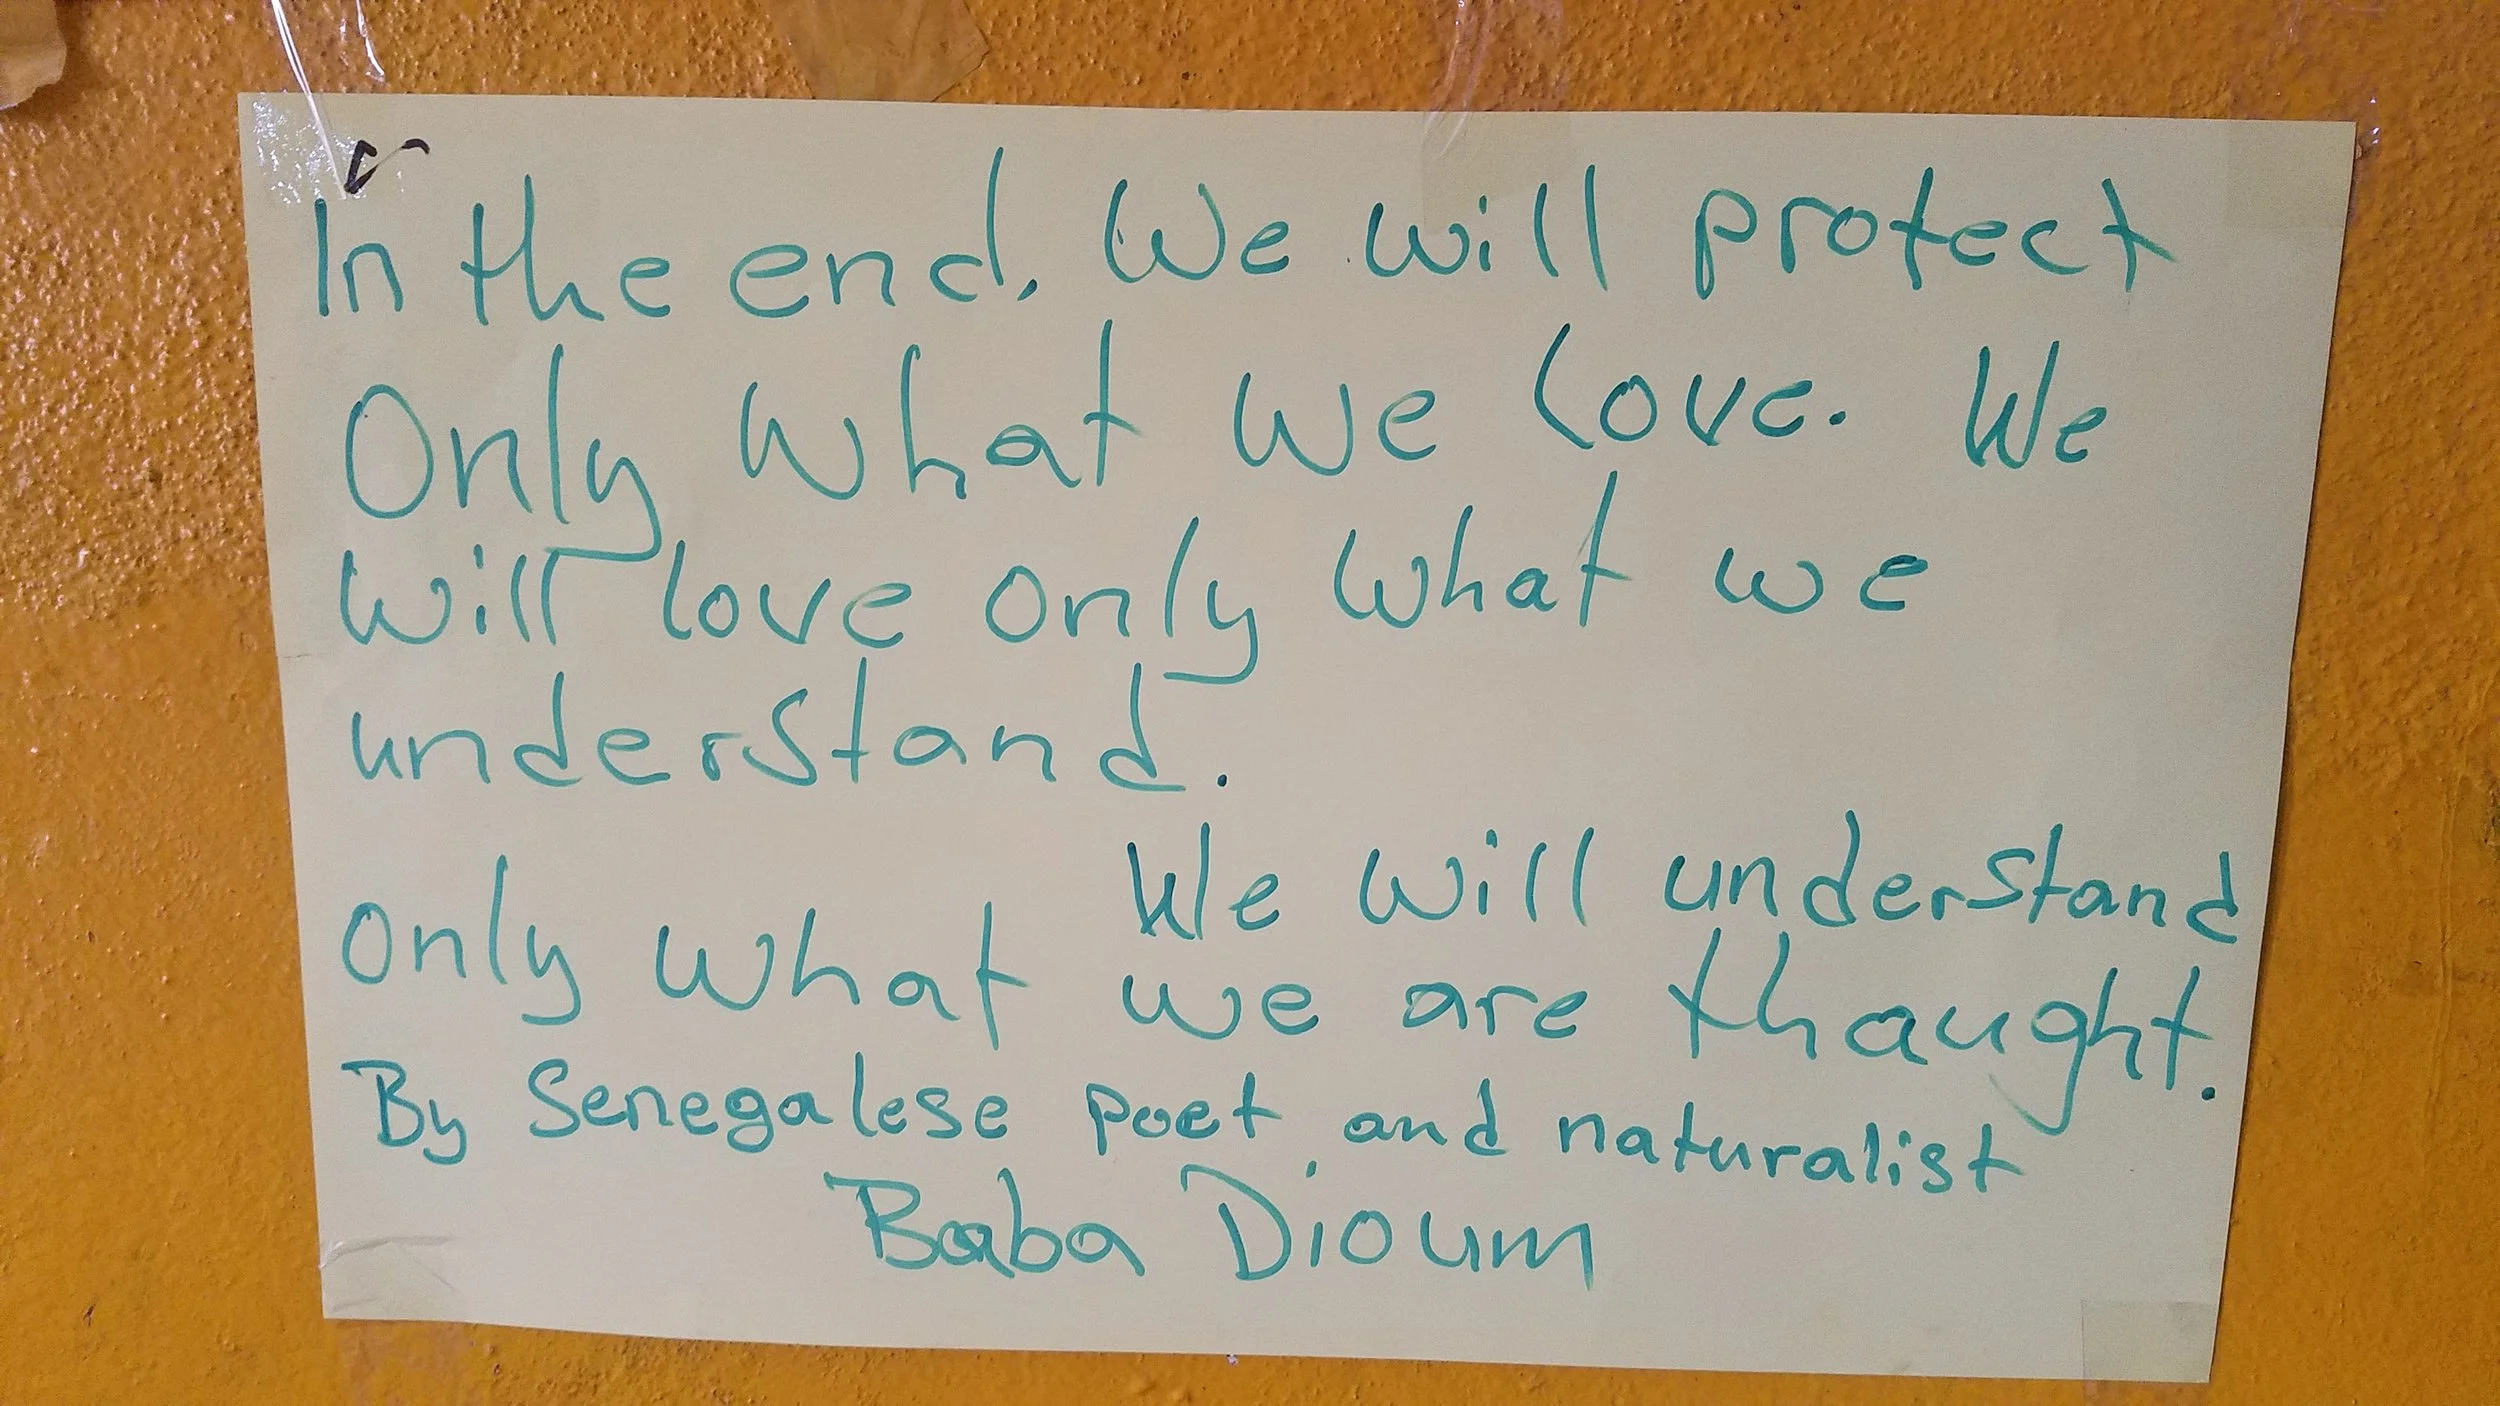 In the end, We will protect
Only What We love. We
Will love only What we
understand.
We Will understand
only What we are thaught.
By Senegalese poet and naturalist
Baba Dioum